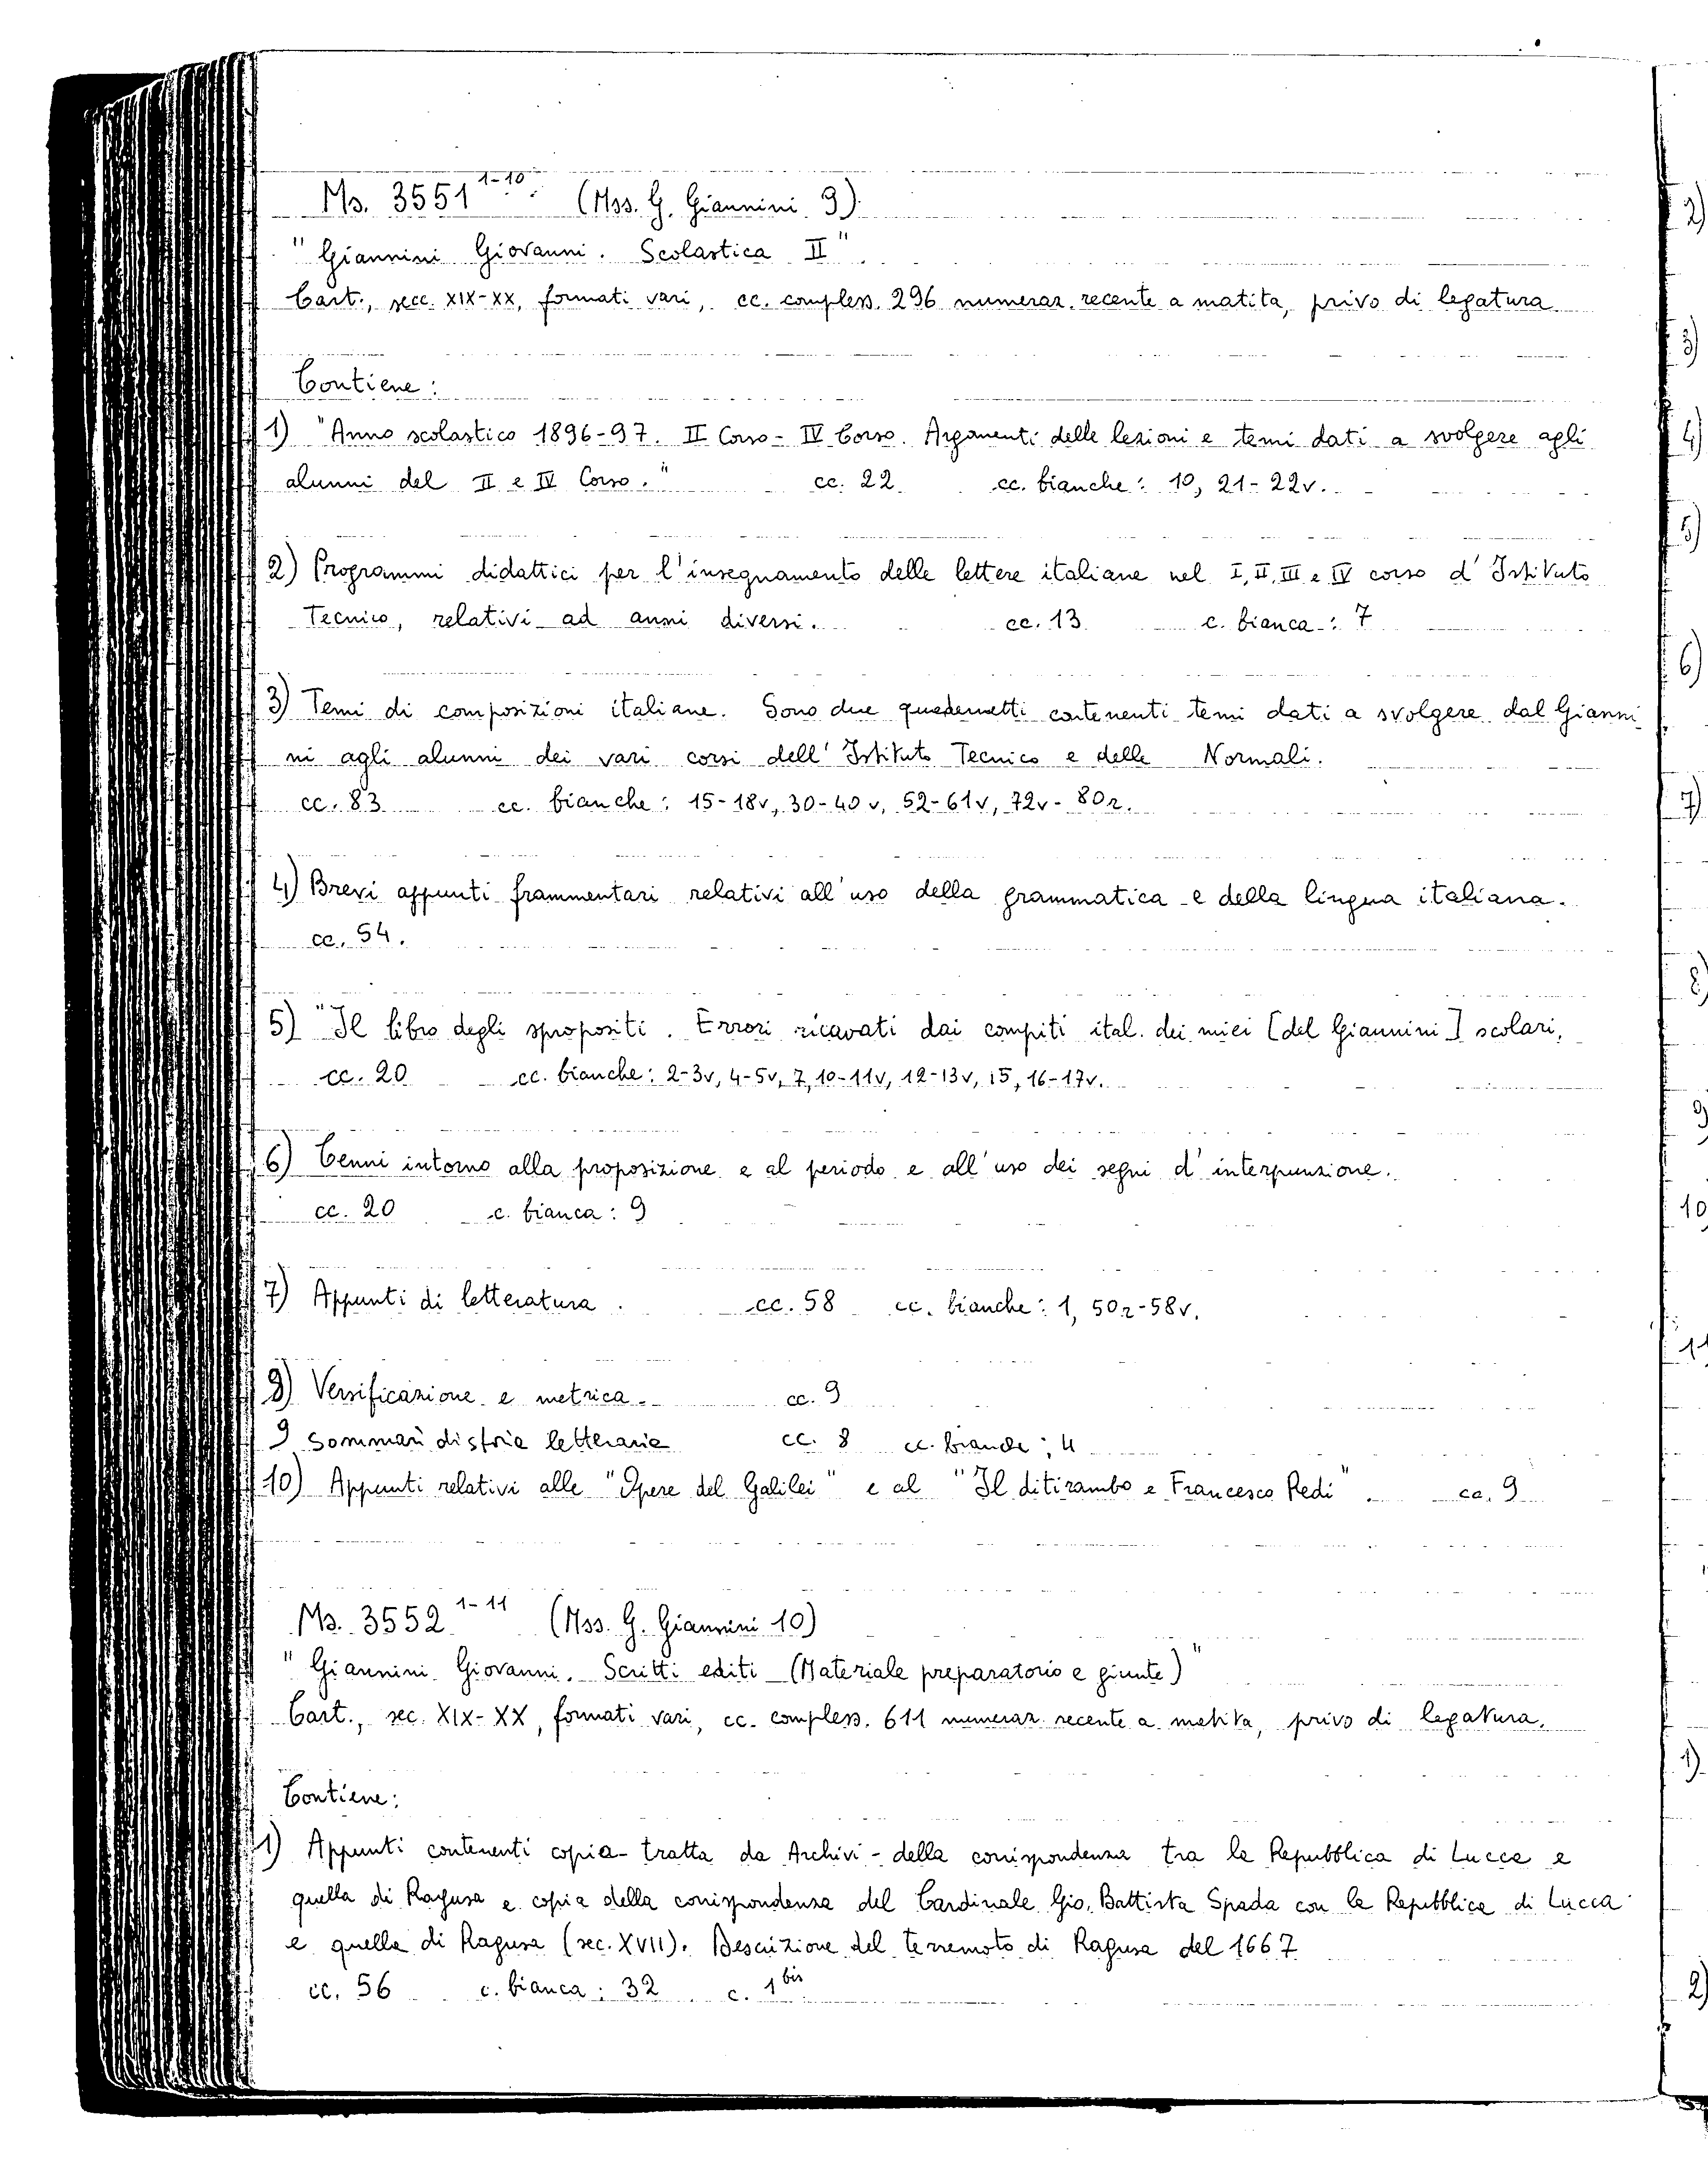 Ms. 3551 1-10 (Mss. G. Giannini 9)
"Giannini Giovanni. Scolastica II".
Cart., secc. XIX-XX, formati vari, cc. compless. 296 numeraz. recente a matita, privo di legatura
Contiene:
1) "Anno scolastico 1896-97. II Corso - IV Corso. Argomenti delle lezioni e temi dati a svolgere agli
alunni del II e IV Corso." cc. 22 cc. bianche: 10, 21-22v.
2) Programmi didattici per l'insegnamento delle lettere italiane nel I, II, III e IV corso d'Istituto
Tecnico, relativi ad anni diversi. cc. 13 c. bianca: 7
3) Temi di composizioni italiane. Sono due quadernetti contenenti temi dati a svolgere dal Gianni
ni agli alunni dei vari corsi dell'Istituto Tecnico e delle Normali.
cc. 83 cc. bianche: 15-18v, 30-40v, 52-61v, 72v-80r.
4) Brevi appunti frammentari relativi all'uso della grammatica e della lingua italiana.
cc. 54.
5) "Il libro degli spropositi. Errori ricavati dai compiti ital. dei miei [del Giannini] scolari,
cc. 20 cc. bianche: 2-3v, 4-5v, 7, 10-11v, 12-13v, 15, 16-17v.
6) Cenni intorno alla proposizione e al periodo e all'uso dei segni d'interpunzione.
cc. 20 c. bianca: 9
7) Appunti di letteratura. cc. 58 cc. bianche: 1, 50r-58v.
8) Versificazione e metrica. cc. 9
9 Sommari di storia letteraria cc. 8 cc. bianche: 4
10) Appunti relativi alle "Opere del Galilei" e al "Il ditirambo e Francesco Redi". cc. 9
Ms. 3552 1-11 (Mss. G. Giannini 10)
"Giannini Giovanni. Scritti editi (Materiale preparatorio e giunte)"
Cart., sec. XIX-XX, formati vari, cc. compless. 611 numeraz. recente a matita, privo di legatura.
Contiene:
1) Appunti contenenti copia - tratta da Archivi - della corrispondenza tra la Repubblica di Lucca e
quella di Ragusa e copia della corrispondenza del Cardinale Gio. Battista Spada con la Repubblica di Lucca
e quella di Ragusa (sec. XVII). Descrizione del terremoto di Ragusa del 1667
cc. 56 c. bianca: 32 c. 1 bis
2)
3)
4)
5)
6)
7)
8)
9)
10
11
1)
2)